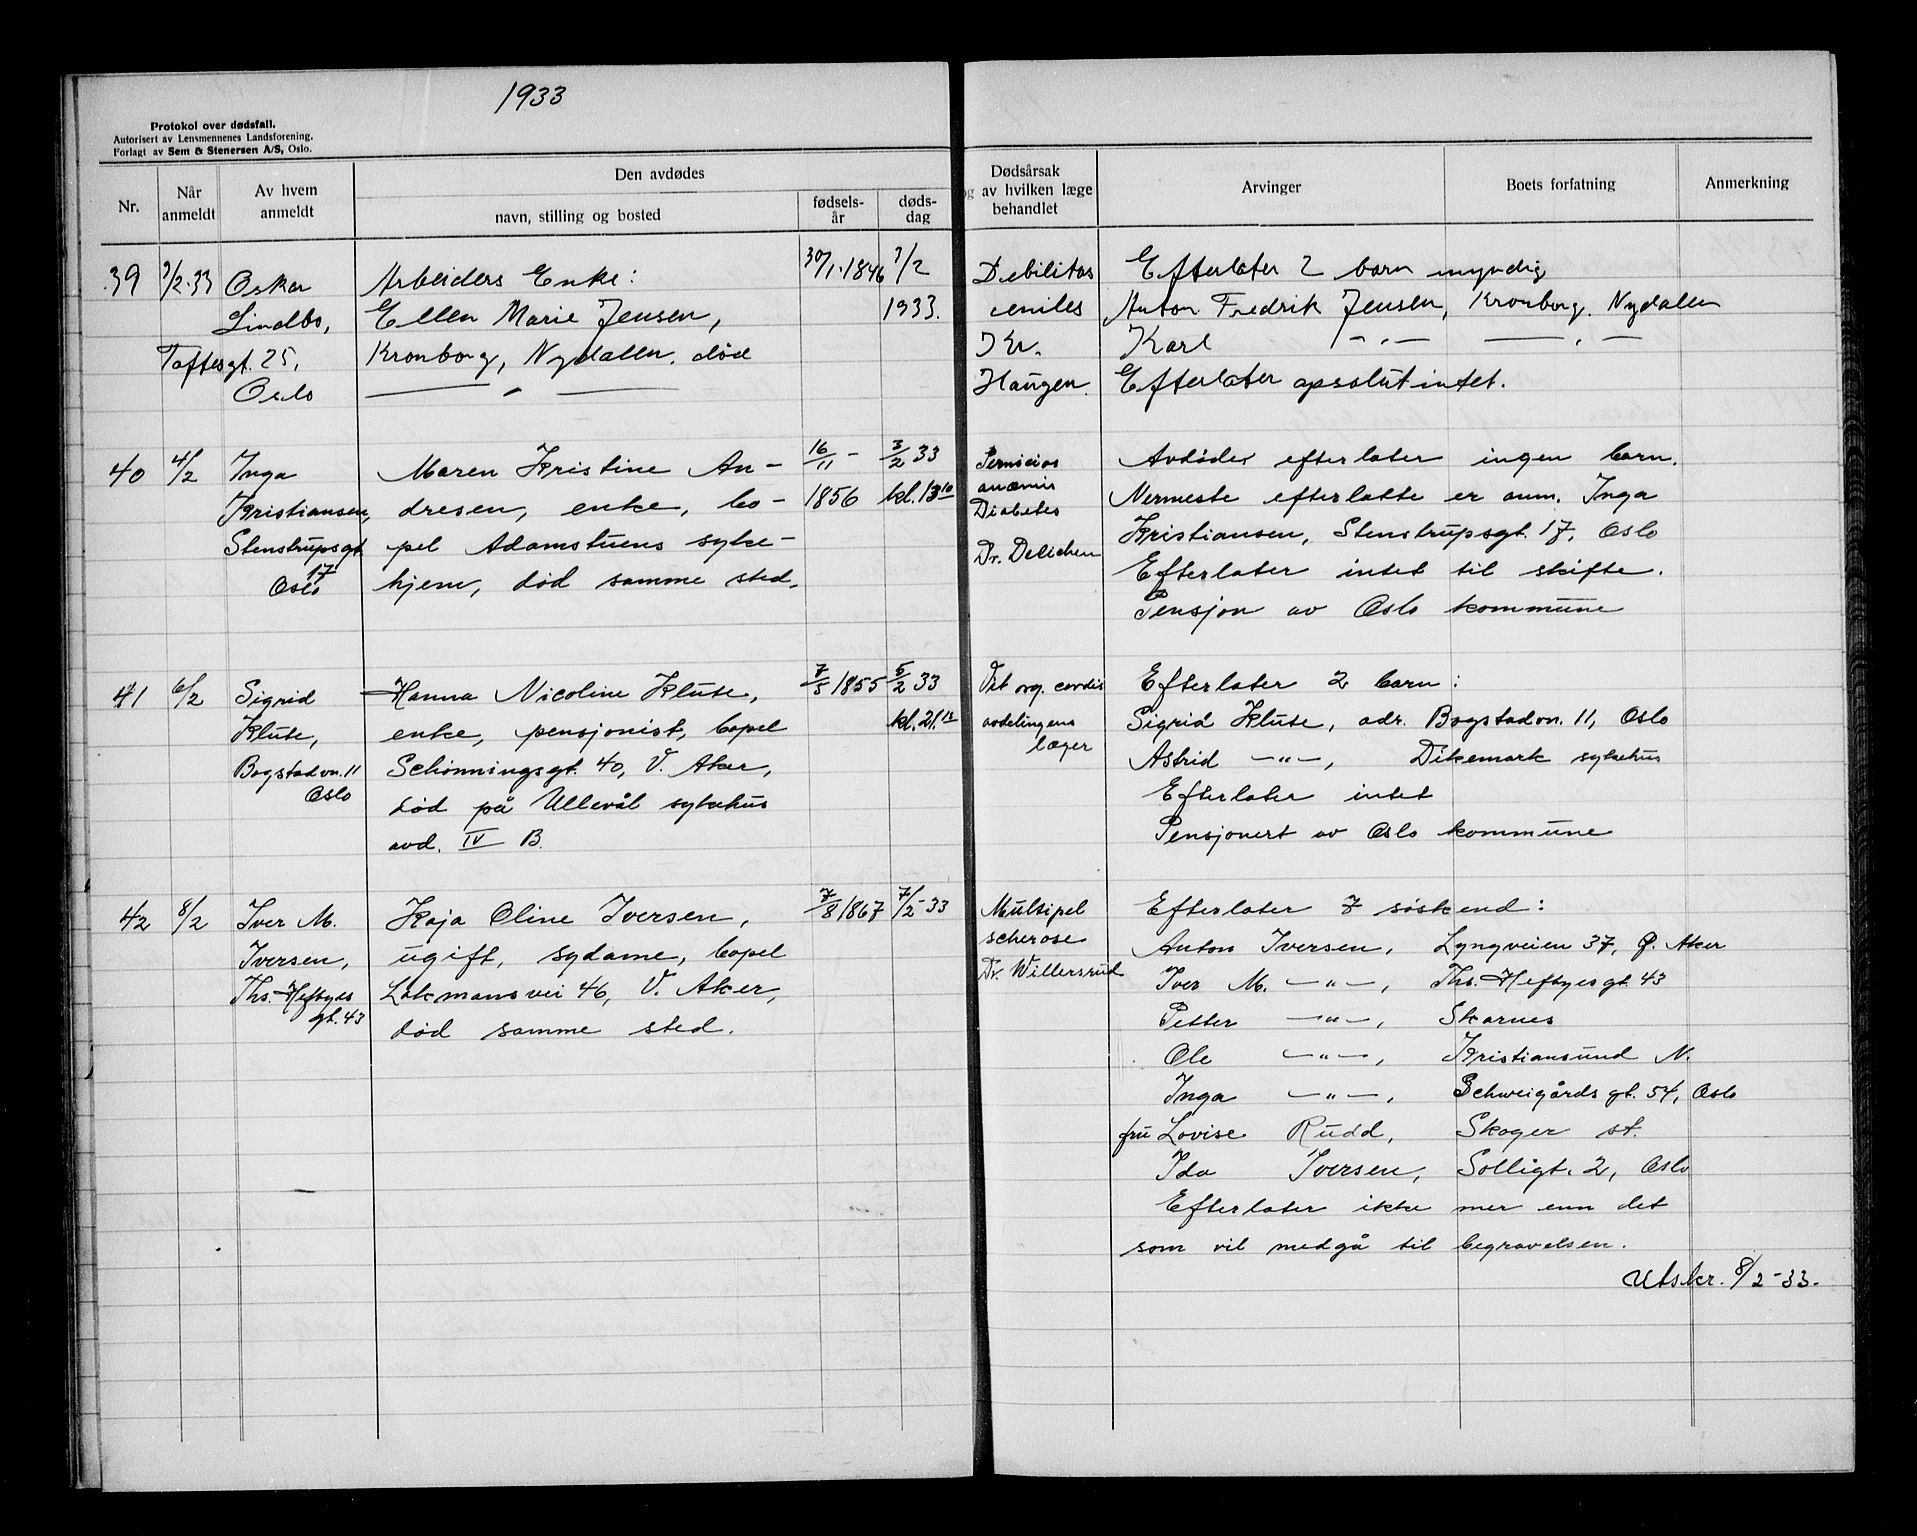 1933
Protokol over dødsfall.
Autorisert av Lensmennenes Landsforening.
Forlagt av Sem & Stenersen A/S, Oslo.
Nr.
Når anmeldt
Av hvem anmeldt
Den avdødes
navn, stilling og bosted
fødsels-år
døds-dag
Dødsårsak
og av hvilken læge
behandlet
Arvinger
Boets forfatning
Anmerkning
39 7/2-33 Oskar Arbeiders Enke: 30/1-1846 7/2 Debilitas Efterlater 2 barn myndig
Lindbo, Ellen Marie Jensen, 1933. seniles Anton Fredrik Jensen, Kronborg, Nydalen
Toftesgt. 25, Kronborg, Nydalen, død Kr. Karl —„— —„—
Oslo —„— Haugen. Efterlater apsolut intet.
40 4/2 Inga Maren Kristine An- 16/11 - 3/2 33 Pernicios Avdøde efterlater ingen barn.
Kristiansen, dresen, enke, bo- 1856 kl. 13 10 anæmis Nermeste efterlatte er anm. Inga
Stenstrupsgt pel Adamstuens syke- Diabetes Kristiansen, Stenstrupsgt. 17, Oslo
17 Oslo hjem, død samme sted. Dr. Efterlater intet til skifte.
Pensjon av Oslo kommune
41 6/2 Sigrid Hanna Nicoline Kluse, 7/5 1855 5/2 33 Vit. org. cordis Efterlater 2 barn:
Kluse, enke, pensjonist, bopel kl. 21. avdelingens Sigrid Kluse, adr. Bogstadvn. 11, Oslo
Bogstadvn. 11 Schønningsgt. 40, V. Aker, læger Astrid —„—, Dikemark sykehus
Oslo død på Ullevål sykehus Efterlater intet
avd. IV B. Pensjonert av Oslo kommune
42 8/2 Iver M. Kaja Oline Iversen, 7/8 1867 7/2-33 Multipel Efterlater 7 søskend:
Iversen, ugift, sydame, bopel sclerose Anton Iversen, Lyngveien 37, Ø. Aker
Ths. Heftyes Lakmansvei 46, V. Aker, Dr. Willersrud Iver M. —„—, Ths. Heftyesgt. 43
gt. 43 død samme sted. Petter —„—, Skarnes
Ole —„—, Kristiansund N.
Inga —„—, Schweigårdsgt. 54, Oslo
fru Lovise Rudd, Skoger st.
Ida Iversen, Solligt. 2, Oslo
Efterlater ikke mer enn det
som vil medgå til begravelsen.
Utskr. 8/2-33.